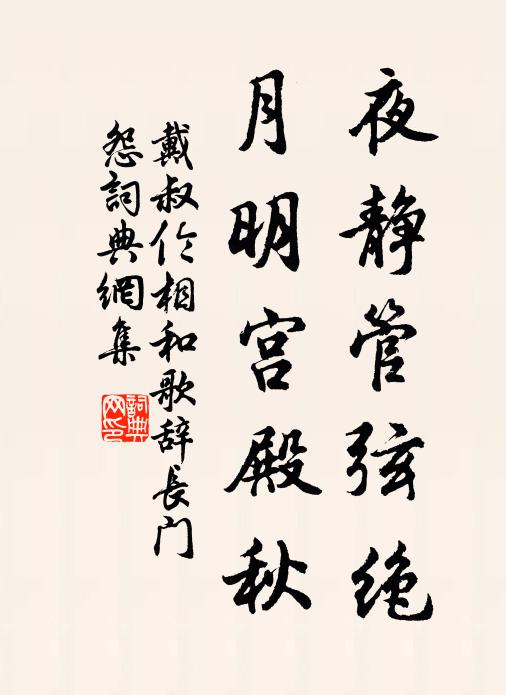 夜静管弦绝
月明宫殿秋
戴叔伦相和歌辞长门
怨詞典網集
詞典网印